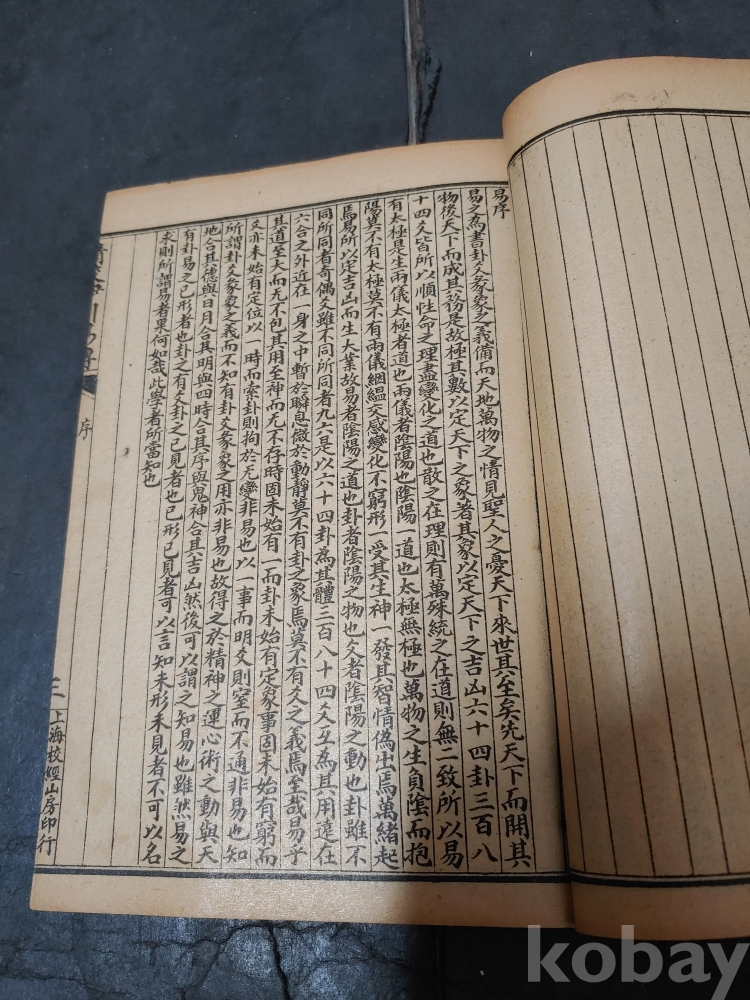 易序
易之為書卦爻彖象之義備而天地萬物之情見聖人之憂天下來世其至矣先天下而開其
物後天下而成其務是故極其數以定天下之象著其象以定天下之吉凶六十四卦三百八
十四爻皆所以順性命之理盡變化之道也散之在理則有萬殊統之在道則無二致所以易
有太極是生兩儀太極者道也兩儀者陰陽也陰陽一道也太極無極也萬物之生負陰而抱
陽莫不有太極莫不有兩儀絪縕交感變化不窮形一受其生神一發其智情偽出焉萬緒起
焉易所以定吉凶而生大業故易者陰陽之道也卦者陰陽之物也爻者陰陽之動也卦雖不
同所同者奇偶爻雖不同所同者九六是以六十四卦為其體三百八十四爻互為其用遠在
六合之外近在一身之中暫於瞬息微於動靜莫不有卦之象焉莫不有爻之義焉至哉易乎
其道至大而无不包其用至神而无不存時固未始有一而卦未始有定象事固未始有窮而
爻亦未始有定位以一時而索卦則拘於无變非易也以一事而明爻則窒而不通非易也知
所謂卦爻彖象之義而不知有卦爻彖象之用亦非易也故得之於精神之運心術之動與天
地合其德與日月合其明與四時合其序與鬼神合其吉凶然後可以謂之知易也雖然易之
有卦易之已形者也卦之有爻卦之已見者也已形已見者可以言知未形未見者不可以名
求則所謂易者果何如哉此學者所當知也
序
三
上海校經山房印行
kobay